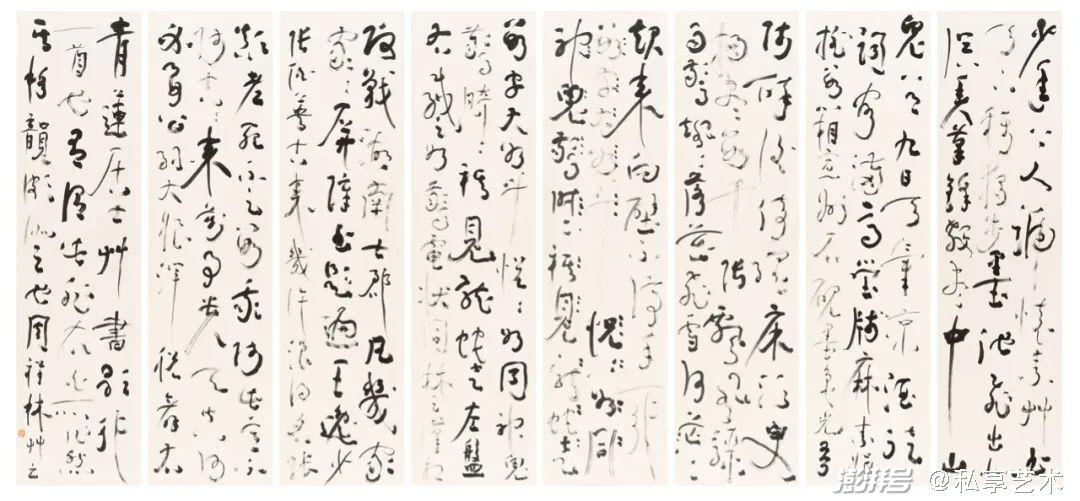 少年上人号怀素草书
天下称独步墨池飞出北
溟鱼笔锋杀尽中山
兔八月九日天气凉酒徒
词客满高堂笺麻素绢
排数箱宣州石砚墨色光吾
师醉后倚绳床须臾
扫尽数千张飘风骤
雨惊飒飒落花飞雪何茫茫
起来向壁不停手一行
数字大如斗恍恍如闻
神鬼惊时时只见龙蛇走
数字大如斗恍恍如闻神鬼
惊时时只见龙蛇走左盘
右蹙如惊电状同楚汉相
攻战湖南七郡凡几家
家家屏障书题遍王逸少
张伯英古来几许浪得名张
颠老死不足数我师此义不
师古古来万事贵天生何
必要公孙大娘浑脱舞
青莲居士草书歌行
一首也
韵之也周祥林草之
澎湃号 @私享艺术